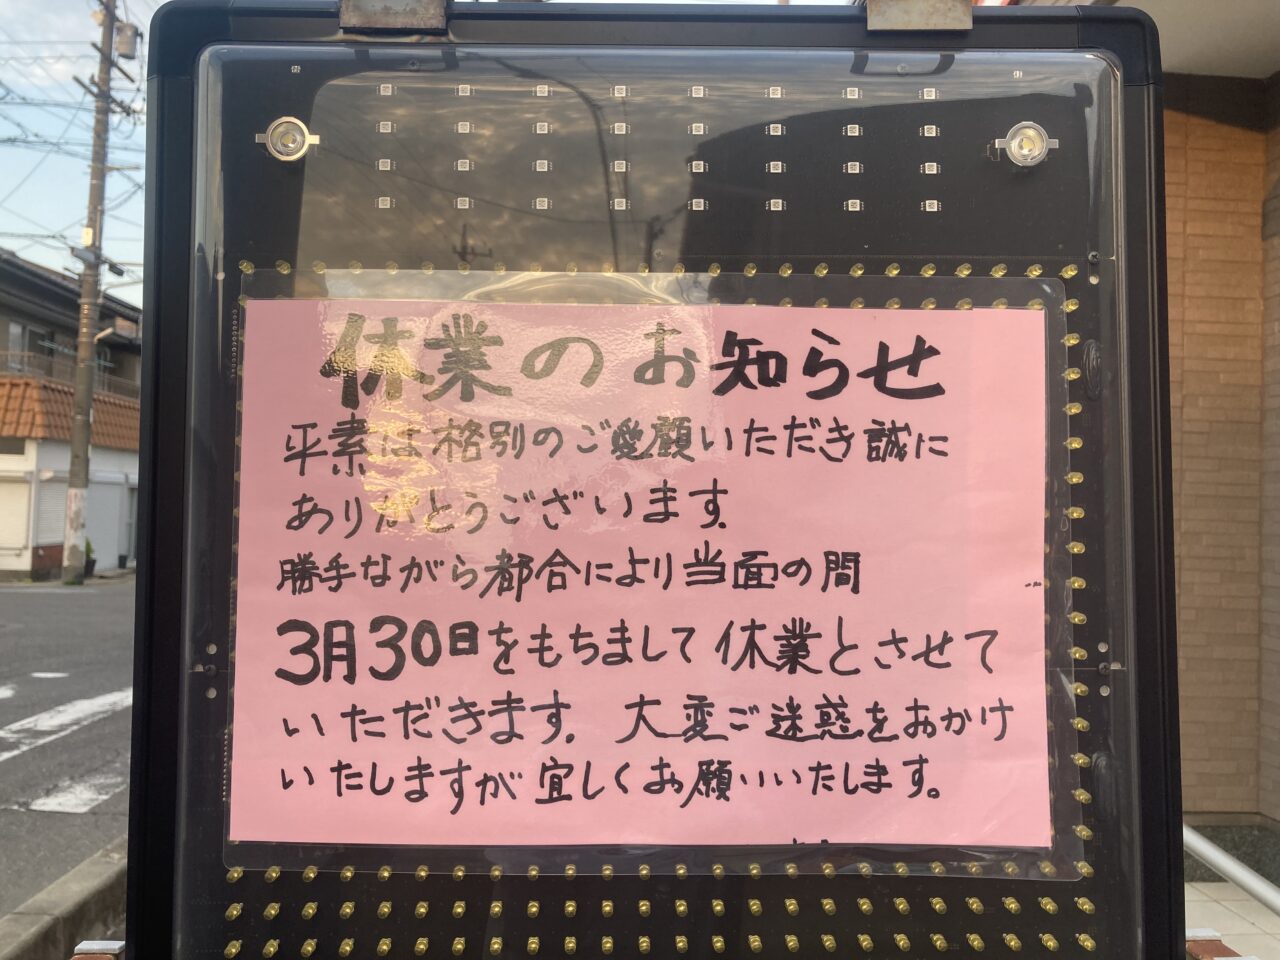 休業のお知らせ
平素は格別のご愛顧いただき誠に
ありがとうございます.
勝手ながら都合により当面の間
3月30日をもちまして休業とさせて
いただきます. 大変ご迷惑をおかけ
いたしますが宜しくお願いいたします。